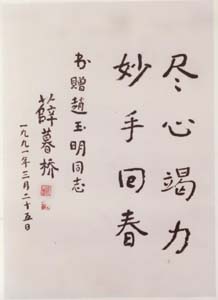 尽心竭力
妙手回春
书赠赵玉明同志
薛暮桥
一九九一年三月二十五日